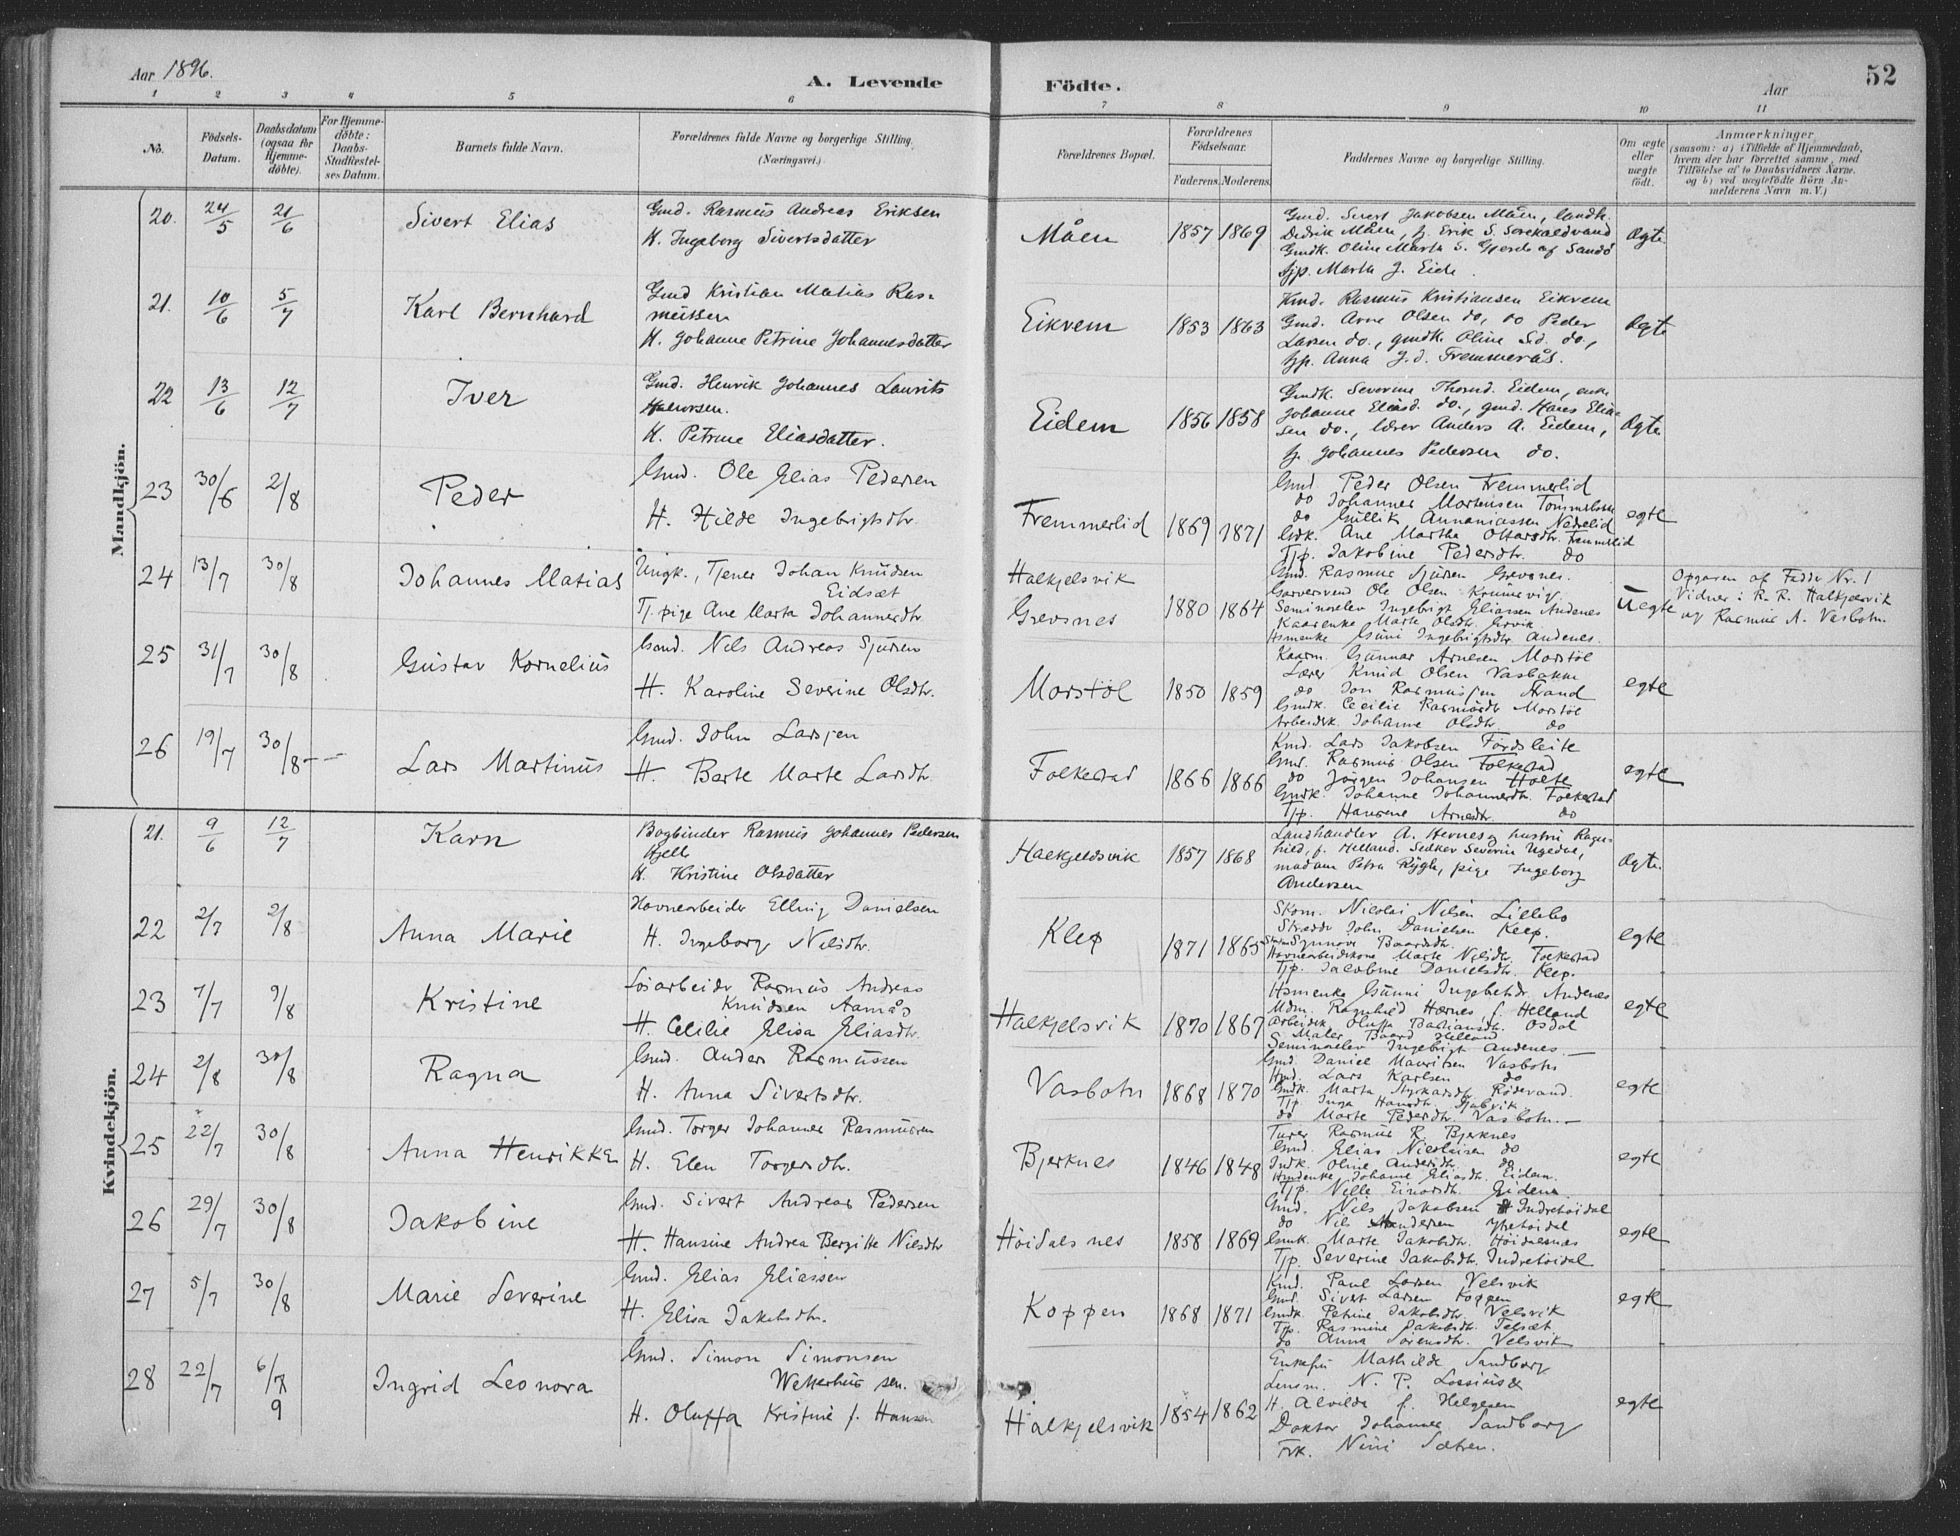 Aar 1896.
A. Levende
Födte.
Aar
52
1 2 3 4 5 6 7 8 9 10 11
No.
Födsels-
Datum.
Daabsdatum
(ogsaa för
Hjemme-
döbte).
For Hjemme-
döbte:
Daabs-
Stadfæstel-
ses Datum.
Barnets fulde Navn.
Forældrenes fulde Navne og borgerlige Stilling.
(Næringsvei.)
Forældrenes Bopæl.
Forældrenes
Födselsaar.
Faderens. Moderens.
Faddernes Navne og borgerlige Stilling.
Om ægte
eller
uægte
födt.
Anmærkninger
(saasom: a) i Tilfælde af Hjemmedaab,
hvem der har forrettet samme, med
Tilföielse af to Daabsvidners Navne.
og b) ved uægtefödte Börn An-
melderens Navn m. V.)
Mandkjön.
20. 24/5 21/6 Sivert Elias
Gmd. Rasmus Andreas Eriksen
H. Ingeborg Sivertsdatter
Måen 1857 1869
Gmd. Sivert Jakobsen Måen, landh.
Didrik Måen,
Gmdk. Oline Marta S. Gjerde af Sandö
Tjp. Marta J. Eide.
Ægte
21. 10/6 5/7 Karl Bernhard
Gmd Kristian Matias Ras-
mussen
H. Johanne Petrine Johannesdatter
Eikrem 1853 1863
Kmd. Rasmus Kristiansen Eikrem
Gmd. Arne Olsen do, do Peder
Larsen do., gmdk. Oline S.d. do.,
Tjp. Anna J.d. Fremmerås.
Ægte
22 13/6 12/7 Iver
Gmd. Henrik Johannes Laurits
Halvorsen.
H. Petrine Eliasdatter.
Eidem 1856 1858
Gmdk. Severine Thorsd. Eidem, enke
Johanne Eliasd. do., gmd. Hans Elia-
sen do., lærer Anders A. Eidem,
Johannes Pedersen do.
Ægte
23 30/6 2/8 Peder
Gmd. Ole Elias Pedersen
H. Hilde Ingebrigtsdtr.
Fremmerlid 1869 1871
Gmd Peder Olsen Fremmerlid
do Johannes Mortensen
do Gullik Annaniassen Nedrelid
Gdk. Ane Martha Olsdtr. Fremmerlid
Tjp. Jakobine Pedersdtr. do
egte
24 13/7 30/8 Johannes Matias
Ungk., Tjener Johan Knudsen
Eidsæt
Tj.pige Ane Marta Johannesdtr.
Halkjelsvik
Grevsnes
1880 1864
Gmd. Rasmus Sjursen Grevsnes.
Garversvend Ole Olsen
Seminarelev Ingebrigt Eliassen Andenes
Marte Olsdtr. Ervik
Hsmenke Guni Ingebrigtsdtr. Andenes.
Uegte
Opgaven af Fadder Nr. 1
Vidner: R. R. Halkjelsvik
og Rasmus A. Vasbotn.
25 31/7 30/8 Gustav Kornelius
Gmd. Nils Andreas Sjursen
H. Karoline Severine Olsdtr.
Morstöl 1850 1859
Kaarm. Gunnar Arnesen Morstöl
Lærer Knud Olsen Vasbakke
do Jon Rasmussen Arand
Gmdk. Cecilie Rasmusdtr Morstöl
Arbeidsk. Johanne Olsdtr. do
egte
26 19/7 30/8 - - Lars Martinus
Gmd. John Larssen
H. Berte Marte Larsdtr.
Folkestad 1866 1866
Kmd. Lars Jakobsen Fördsleite
Gmd. Rasmus Olsen Folkestad
do Jörgen Johansen Holte
Gmdk. Johanne Johannesdtr. Folkestad
Tjp. Hansine Arnesdtr. do
egte
Kvindekjön.
21. 9/6 12/7 Karn
Bogbinder Rasmus Johannes Pedersen
Hjelle
H. Kristine Olsdatter
Halkjeldsvik 1857 1868
Landhandler A. Hernes og hustru Ragn-
hild, f. Helland.
madam Petra Rygh, pige Ingeborg
Andersen
Ægte.
22 2/7 2/8 Anna Marie
Havnearbeider Elling Danielsen
H. Ingeborg Nilsdtr.
Klep 1871 1865
Skom. Nicolai Nilsen Lillebö
John Danielsen Klep.
Synnove Baardsdtr.
Havnearbeiderkone Marte Nilsdtr. Folkestad
Tjp. Jakobine Danielsdtr. Klep.
egte
23 7/7 9/8 Kristine
Rasmus Andreas
Knudsen Aamås
H. Cecilie Elisa Eliasdtr.
Halkjelsvik 1870 1867
Hsmenke Gunni Ingebrtsdr. Andenes
Mdm. Ragnhild Hærnes f. Helland
Arbeidsk. Oluffa Bastiansdtr. Osdal
Maler Baard Helland
Seminarelev Ingebrigt Andenes.
egte
24 2/8 30/8 Ragna
Gmd. Anders Rasmussen
H. Anna Sivertsdtr.
Vasbotn 1868 1870
Gmd. Daniel Mauritsen Vasbotn
Lars Karlsen do
Gmdk. Marta Styrkarsdtr. Rödevand.
Tjp. Inga Hansdtr.
do Marte Pedersdtr. Vasbotn.
egte
25 22/7 30/8 Anna Henrikke
Gmd. Torger Johannes Rasmussen
H. Elen Torgersdtr.
Bjerknes 1846 1848
Rasmus R. Bjerknes
Gmd. Elias Nicolaisen do
Oline Andersdtr. do
Johanne Eliasdtr. Eidem.
Tjp. Nille Einarsdtr. Eidem.
egte
26 29/7 30/8 Jakobine
Gmd. Sivert Andreas Pedersen
H. Hansine Andrea Bergitte Nilsdtr
Höidalsnes 1858 1869
Gmd. Nils Jakobsen Indrehöidal
do Nils Andersen Ytrehöidal
Gmk. Marte Jakobsdtr. Höidalsnes
Tjp. Severine Jakobsdtr. Indrehöidal
egte
27 5/7 30/8 Marie Severine
Gmd. Elias Eliassen
H. Elisa Jakobsdtr.
Koppen 1868 1871
Kmd. Paul Larsen Velsvik
Gmd. Sivert Larsen Koppen
Gmdk. Petrine Jakobsdtr. Velsvik
Tjp. Rasmine Jakobsdtr.
do Anna Sörensdtr. Velsvik
egte
28 22/7 6/9 Ingrid Leonora
Gmd. Simon Simonsen
Wetterhus sen.
H. Oluffa Kristine f. Hansen
Halkjelsvik 1854 1862
Enkefru Mathilde Sandborg
Lensm. N. P. Lossius &
H. Alvilde f. Helgesen
Doktor Johannes Sandborg
Frk. Nini Sætren.
egte